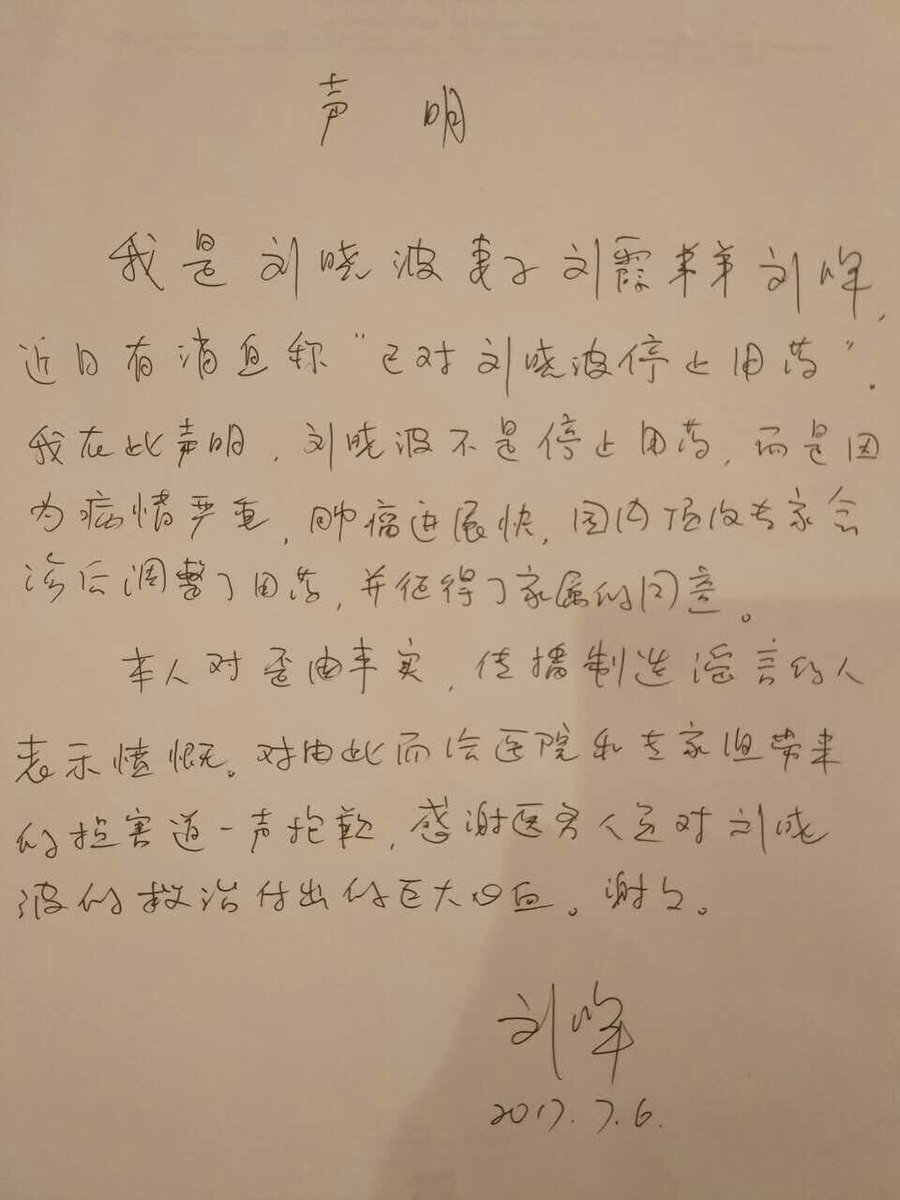 声 明
我是刘晓波妻子刘霞弟弟刘晖，
近日有消息称“已对刘晓波停止用药”.
我在此声明，刘晓波不是停止用药，而是因
为病情严重，肿瘤进展快，国内顶级专家会
诊后调整了用药，并征得了家属的同意。
本人对歪曲事实，传播制造谣言的人
表示愤慨。对由此而给医院和专家组带来
的损害道一声抱歉，感谢医务人员对刘晓
波的救治付出的巨大心血。谢谢。
刘晖
2017.7.6.